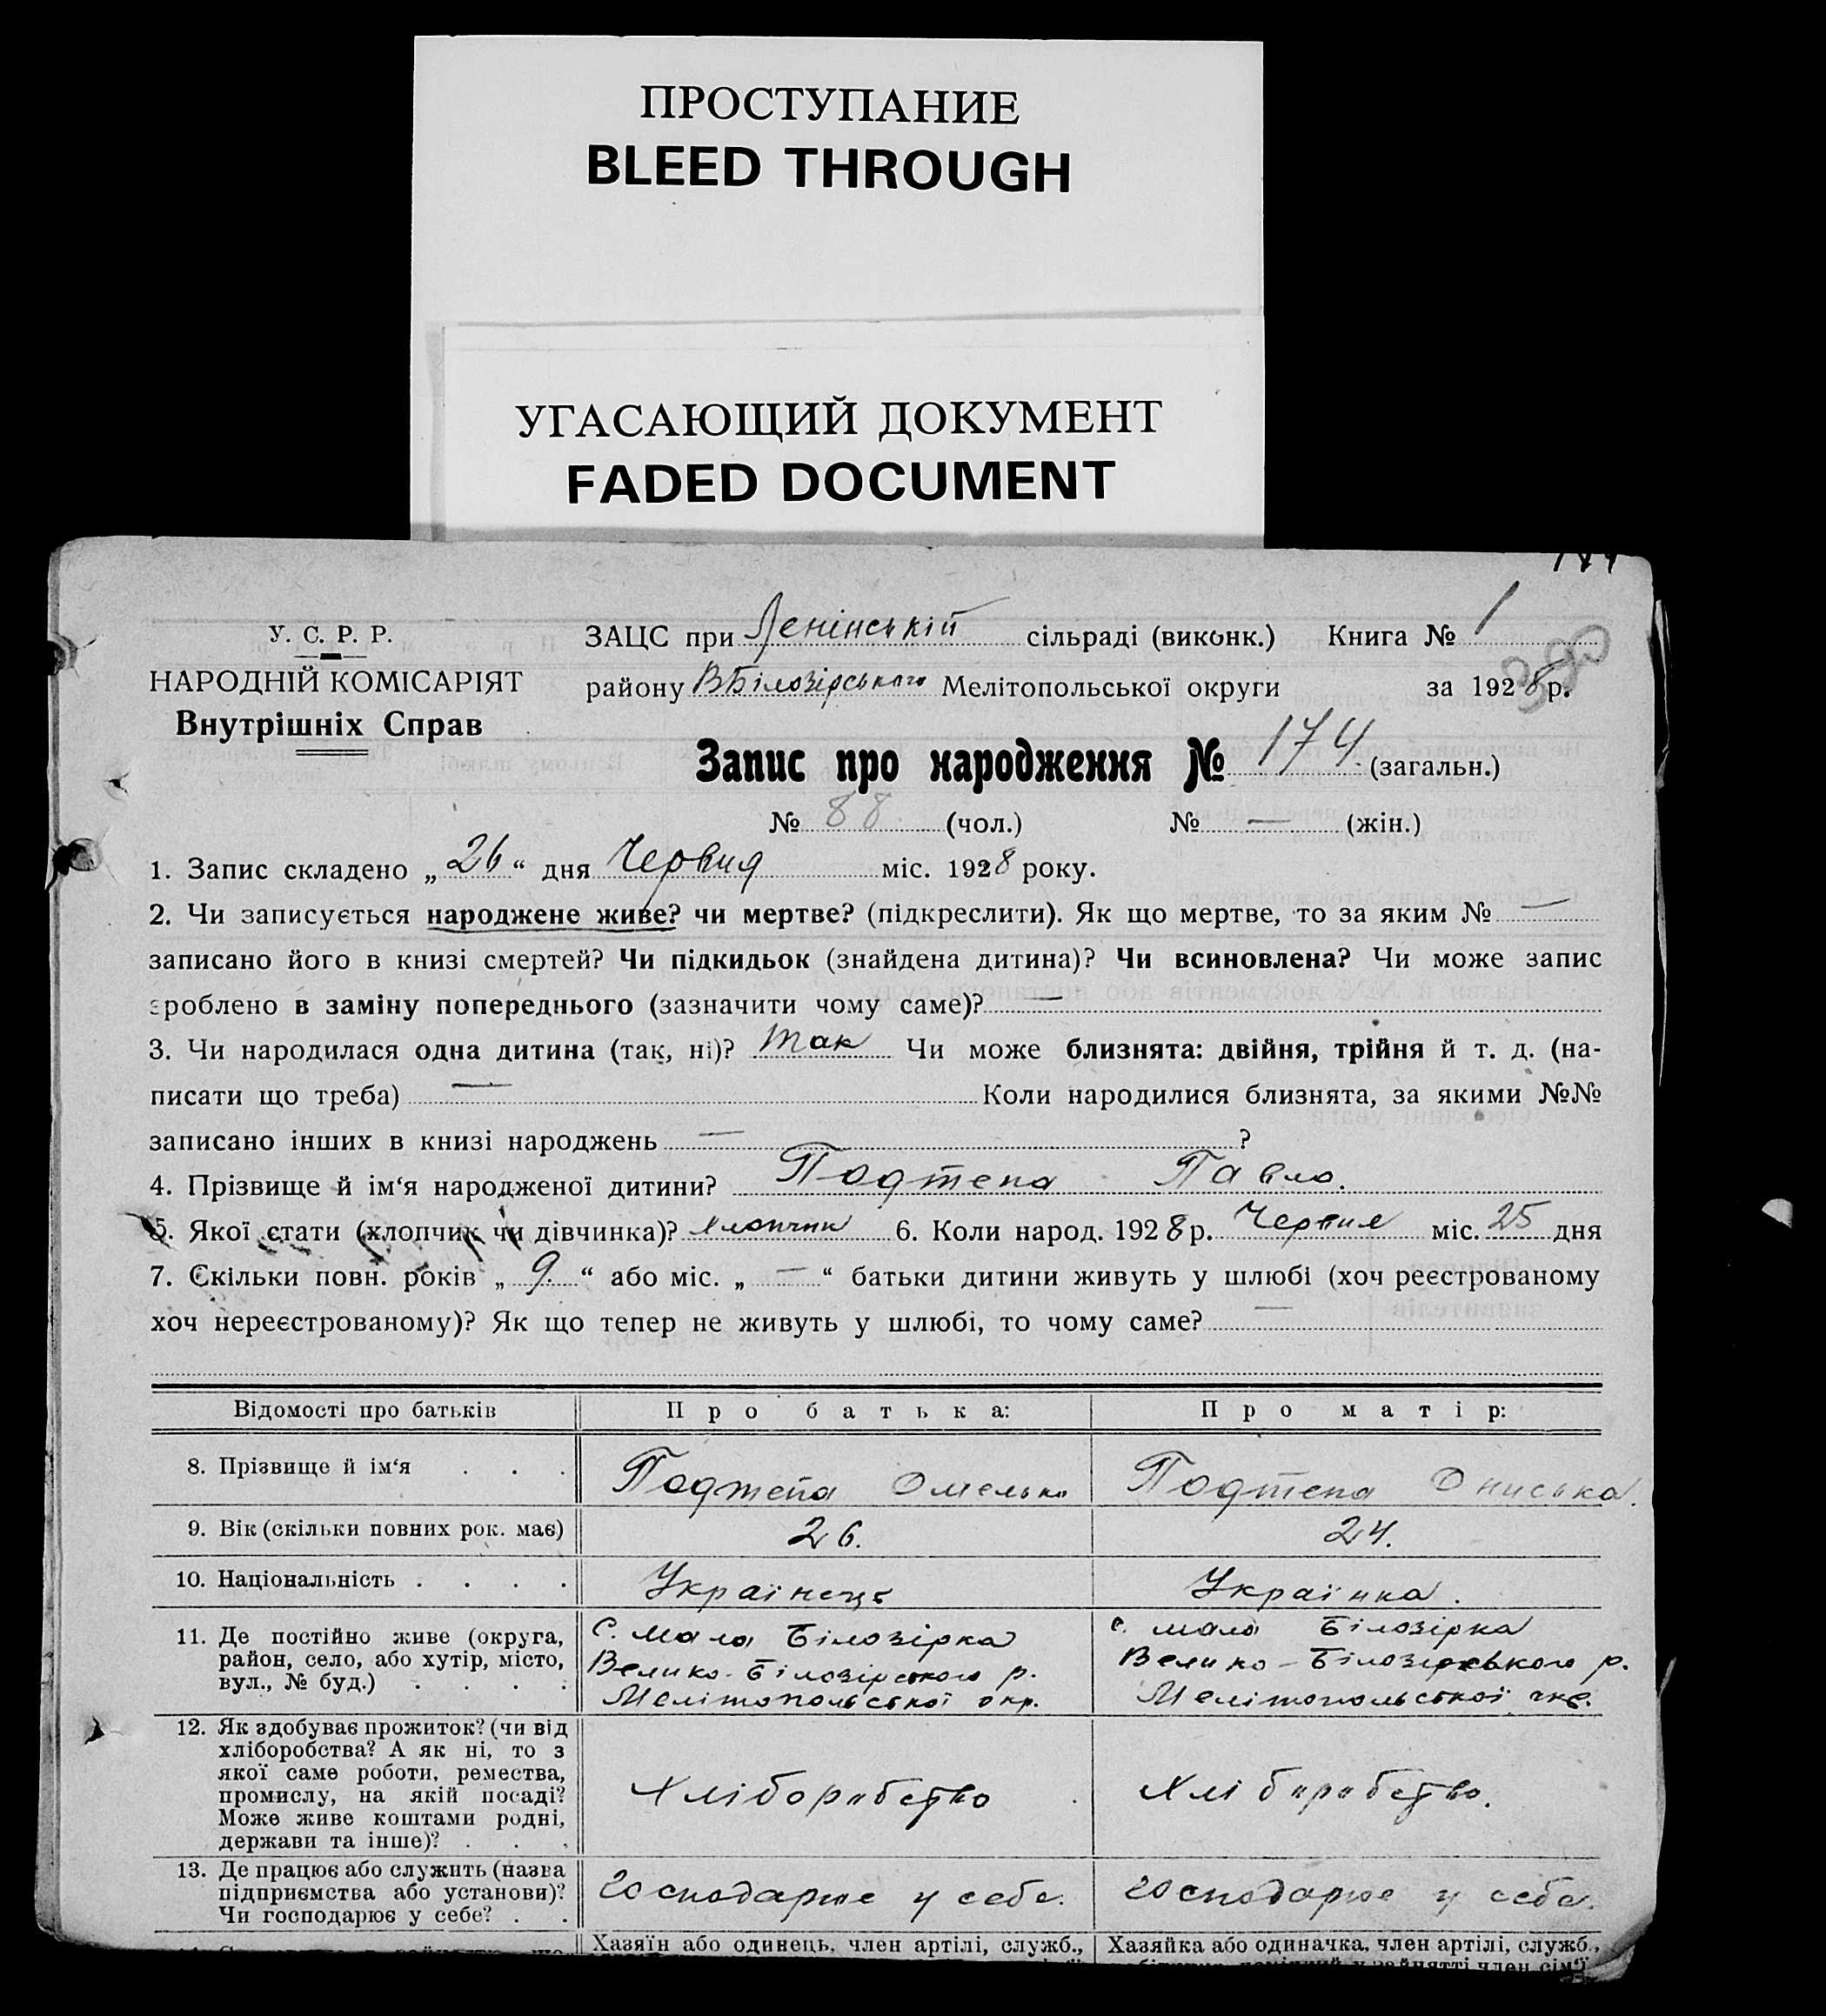 ПРОСТУПАНИЕ
BLEED THROUGH
УГАСАЮЩИЙ ДОКУМЕНТ
FADED DOCUMENT
У. С. Р. Р.
НАРОДНІЙ КОМІСАРІЯТ
Внутрішніх Справ
ЗАЦС при Ленінській сільраді (виконк.) Книга № 1
району ВБілозірського Мелітопольської округи за 1928 р.
390
Запис про народження № 174 (загальн.)
№ 88 (чол.) № — (жін.)
1. Запис складено „ 26 “ дня Червня міс. 1928 року.
2. Чи записується народжене живе? чи мертве? (підкреслити). Як що мертве, то за яким № —
записано його в книзі смертей? Чи підкидьок (знайдена дитина)? Чи всиновлена? Чи може запис
зроблено в заміну попереднього (зазначити чому саме)? —
3. Чи народилася одна дитина (так, ні)? Так Чи може близнята: двійня, трійня й т. д. (на-
писати що треба) — Коли народилися близнята, за якими №№
записано інших в книзі народжень — ?
4. Прізвище й ім‘я народженої дитини? Подтепа Павло.
5. Якої стати (хлопчик чи дівчинка)? хлопчик 6. Коли народ. 1928 р. Червня міс. 25 дня
7. Скільки повн. років „ 9. “ або міс. „ — “ батьки дитини живуть у шлюбі (хоч реєстрованому
хоч нереєстрованому)? Як що тепер не живуть у шлюбі, то чому саме? —
Відомості про батьків Про батька: Про матір:
8. Прізвище й ім‘я . . . Подтепа Омелько Подтепа Ониська.
9. Вік (скільки повних рок. має) 26. 24.
10. Національність . . . . Українець Українка.
11. Де постійно живе (округа,
район, село, або хутір, місто,
вул., № буд.) . . . .
С. Мала Білозірка
Велико-Білозірського р.
Мелітопольської окр.
с. мала Білозірка
Велико-Білозірського р.
Мелітопольської окр.
12. Як здобуває прожиток? (чи від
хліборобства? А як ні, то з
якої саме роботи, ремества,
промислу, на якій посаді?
Може живе коштами родні,
держави та інше)? . . .
Хліборобство
Хліборобство.
13. Де працює або служить (назва
підприємства або установи)?
Чи господарює у себе? . .
господарює у себе.
господарює у себе.
Хазяїн або одинець, член артілі, служб.,
Хазяйка або одиначка, член артілі, служб.,